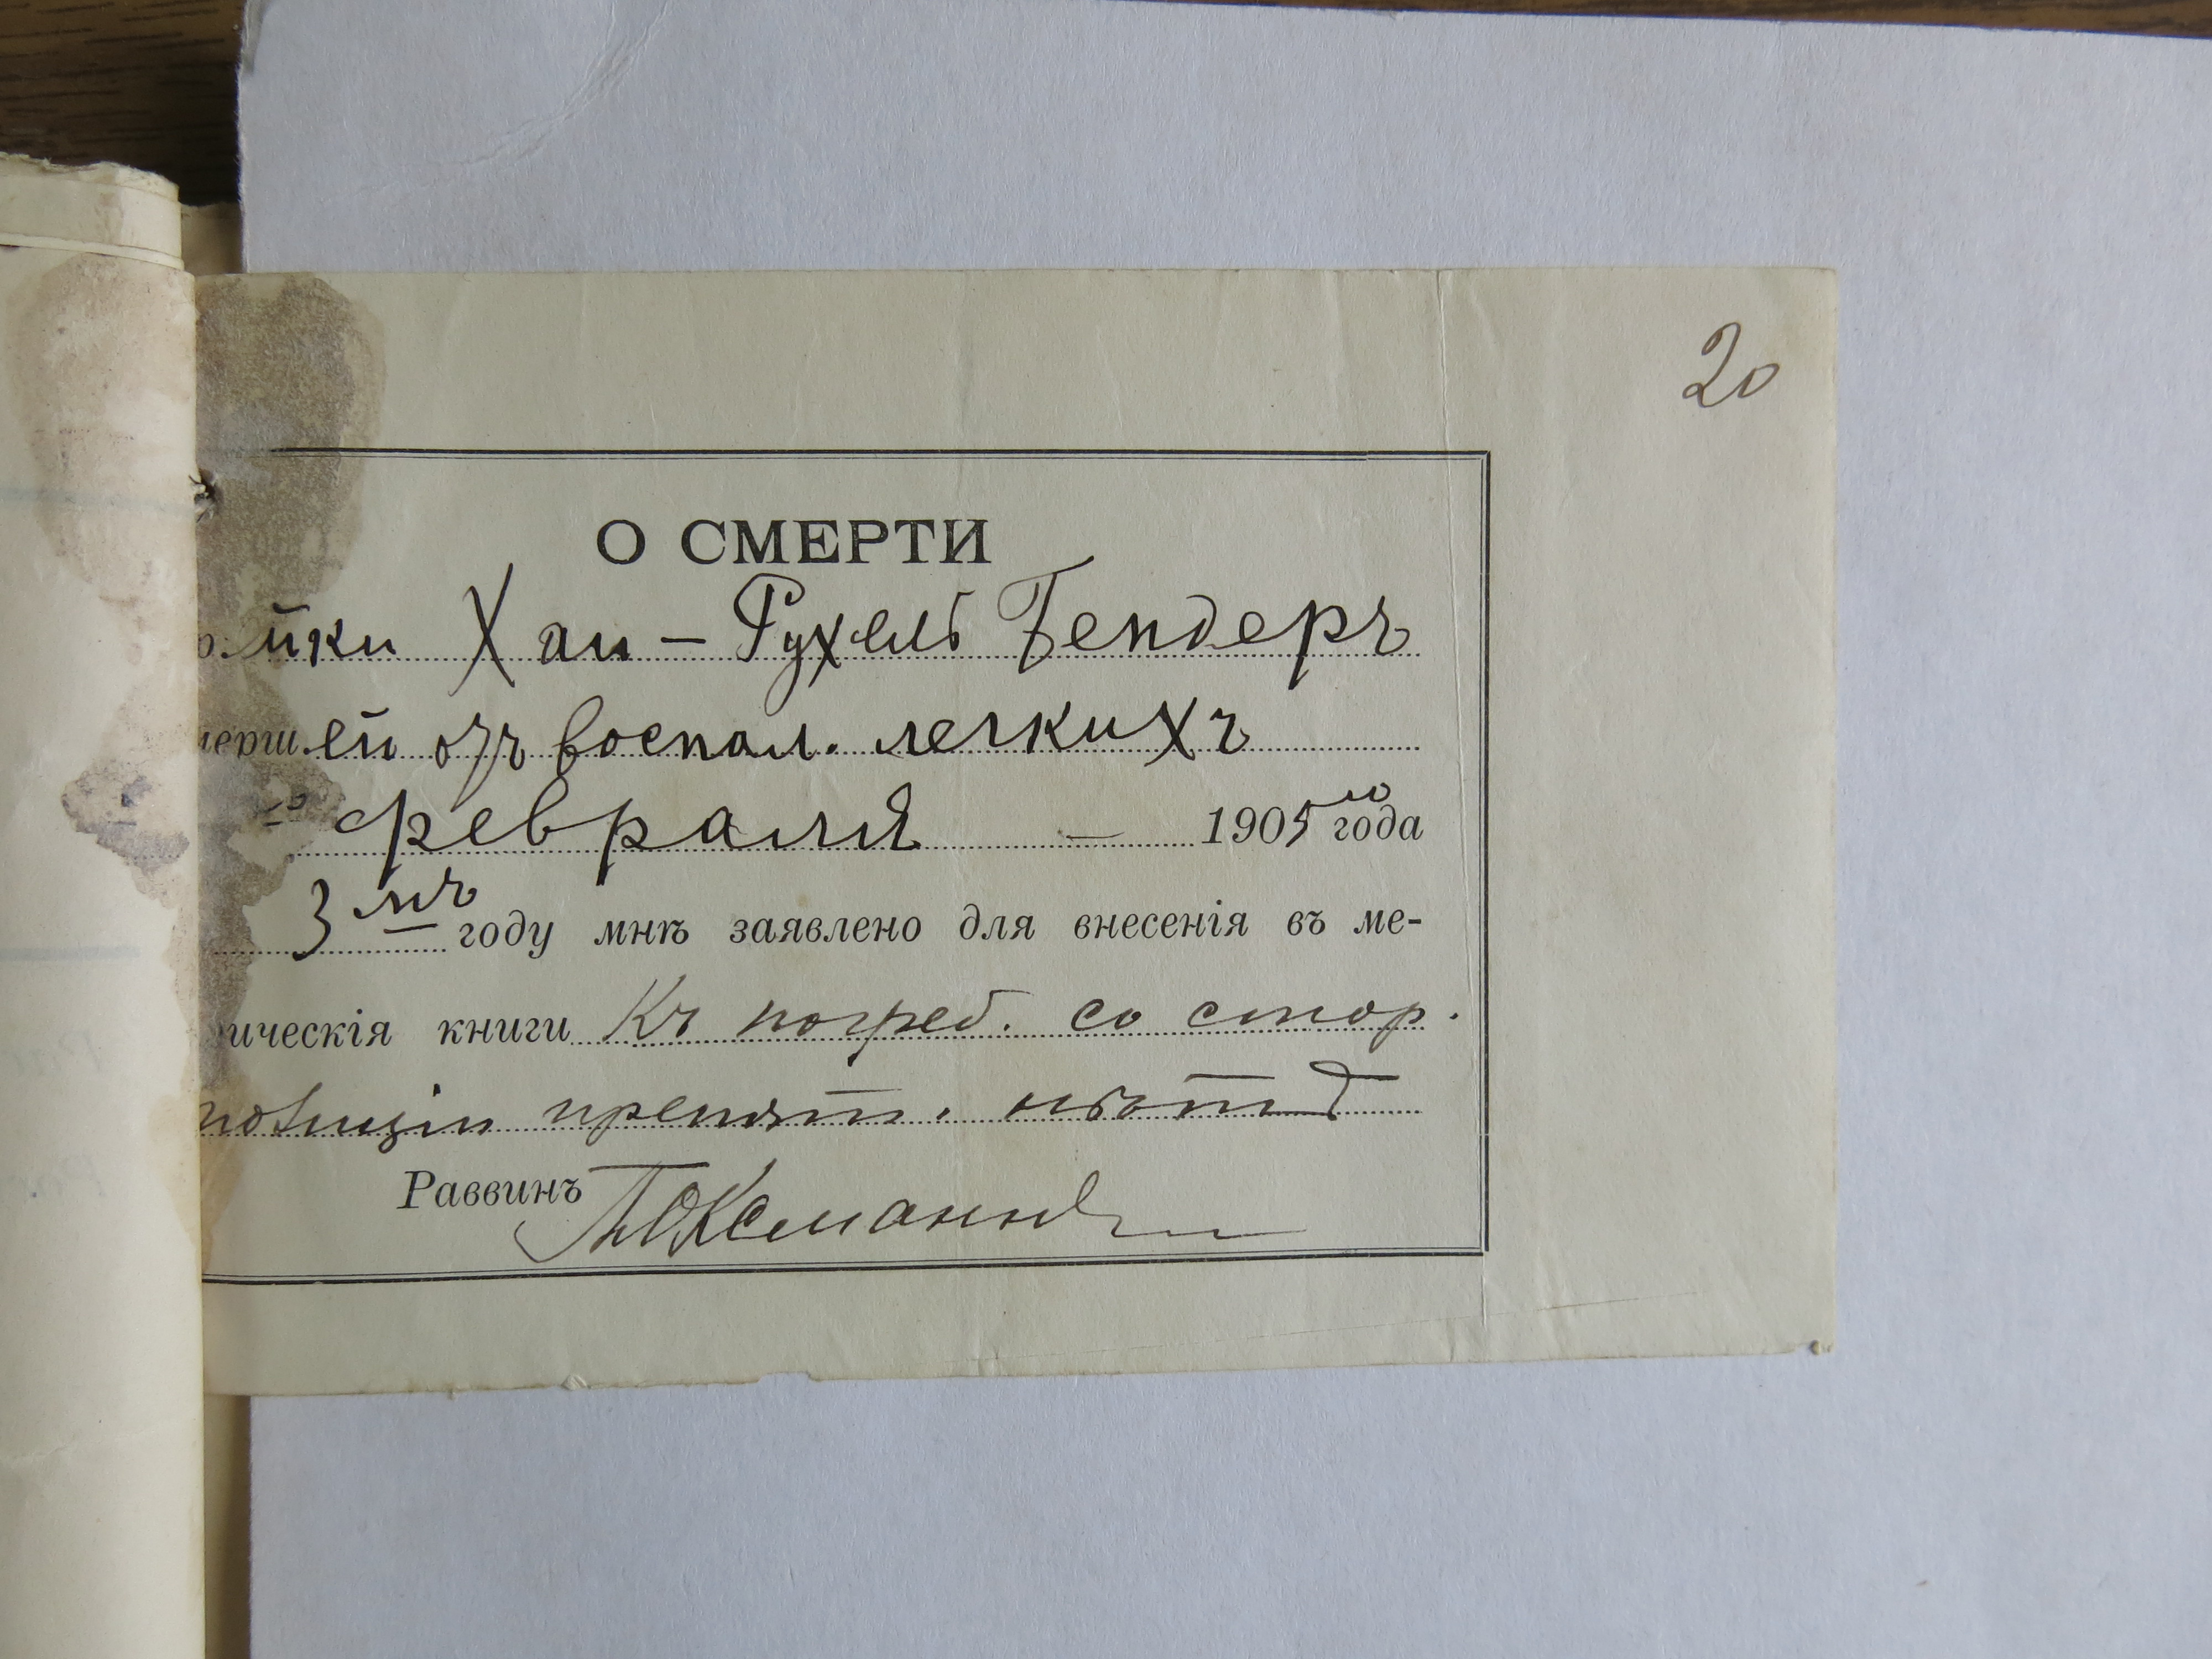 20
О СМЕРТИ
р. йки Хаи - Рухель Бендеръ
мерш.ей отъ воспал. легкихъ
го февраля — 1905 го года
3 мъ году мнѣ заявлено для внесенія въ ме-
рическія книги Къ погреб. со стор.
полиціи препятт. нѣтъ
Раввинъ